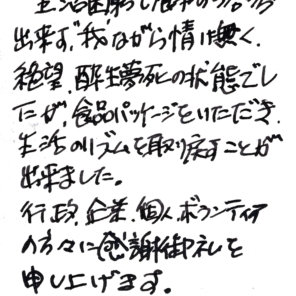 生活困窮し
出来ず、我ながら情け無く、
絶望、酔生夢死の状態でし
たが、食品パッケージをいただき、
生活のリズムを取り戻すことが
出来ました。
行政、企業、個人、ボランティア
の方々に感謝御礼を
申し上げます。